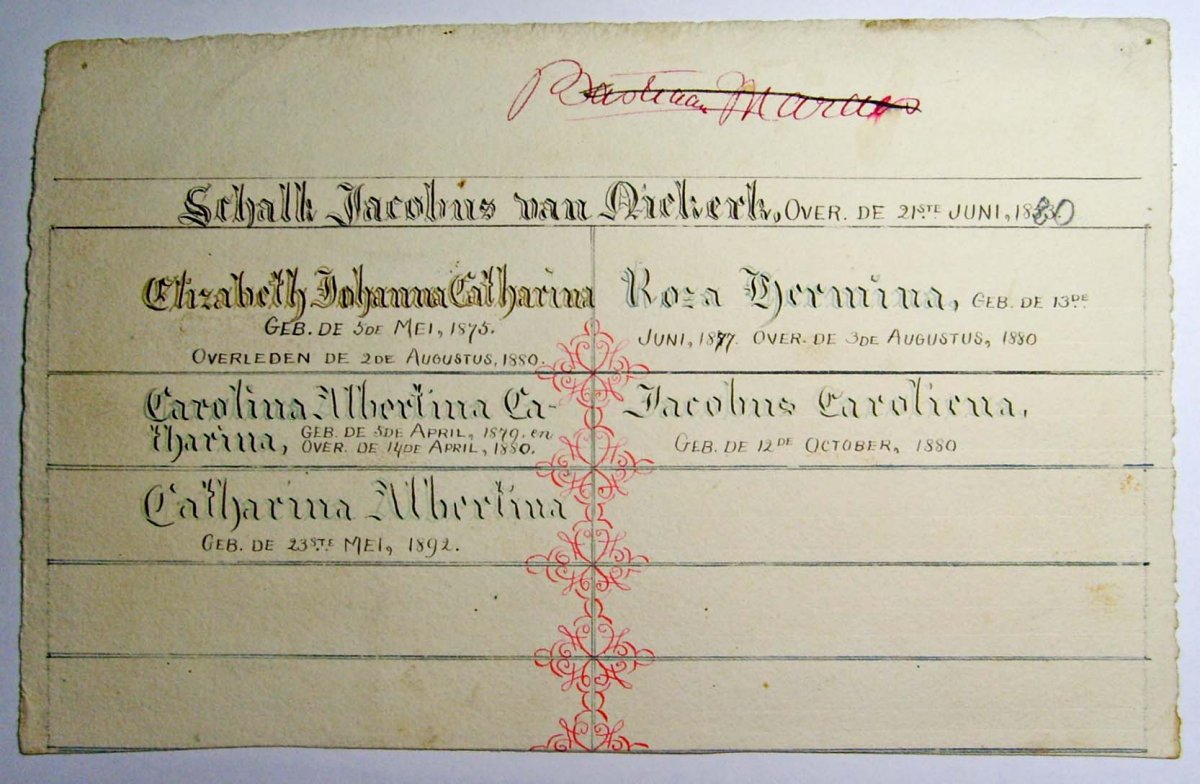 Schalk Jacobus van Niekerk, OVER. DE 21STE JUNI, 1880
Elizabeth Johanna Catharina
GEB. DE 5DE MEI, 1875.
OVERLEDEN DE 2DE AUGUSTUS, 1880.
Roza Hermina, GEB. DE 13DE
JUNI, 1877. OVER. DE 3DE AUGUSTUS, 1880
Carolina Albertina Ca-
tharina, GEB. DE 5DE APRIL, 1879. en
OVER. DE 14DE APRIL, 1880.
Jacobus Caroliena,
GEB. DE 12DE OCTOBER, 1880
Catharina Albertina
GEB. DE 23STE MEI, 1892.